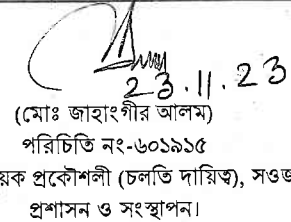 23.11.23
(মোঃ জাহাংগীর আলম)
পরিচিতি নং-৬০১৯১৫
প্রকৌশলী (চলতি দায়িত্ব), সওজ
প্রশাসন ও সংস্থাপন।